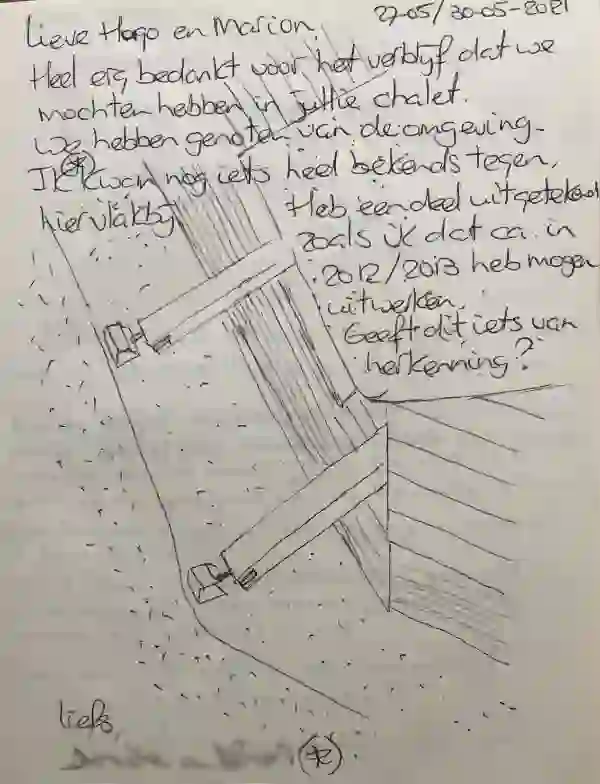 27-05/30-05-2021
Lieve Hugo en Marion,
Heel erg bedankt voor het verblijf dat we
mochten hebben in jullie chalet.
We hebben genoten van de omgeving.
Ik kwam nog iets heel bekends tegen,
hier vlakbij
Heb een deel uitgetekend
zoals ik dat ca. in
2012/2013 heb mogen
uitwerken.
Geeft dit iets van
herkenning?
liefs,